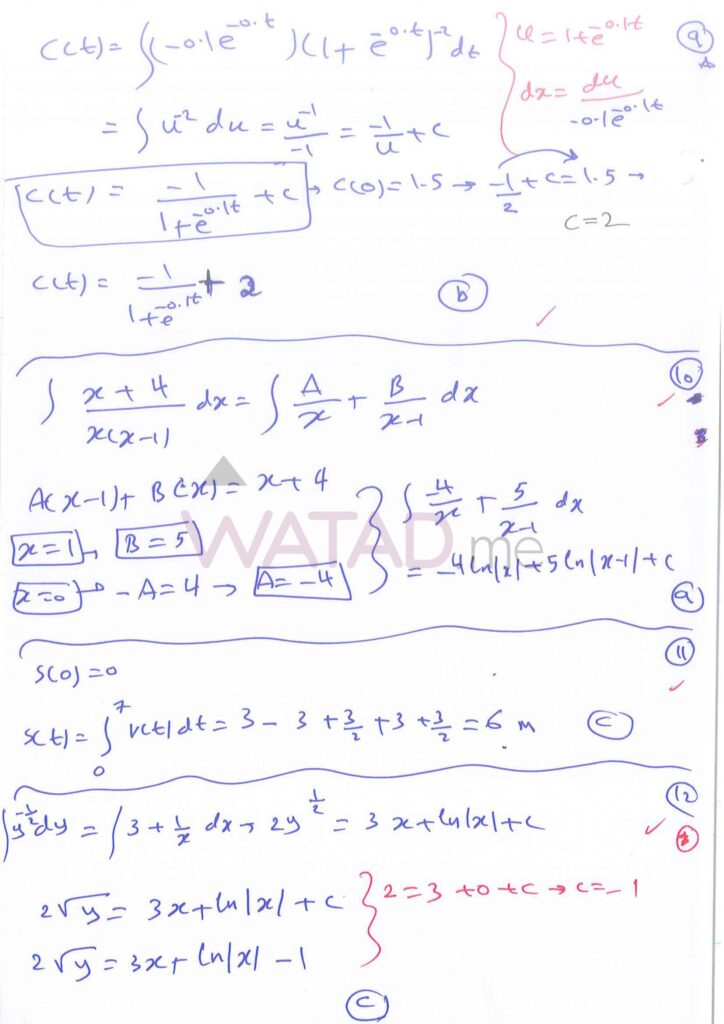 C(t) = ∫(-0.1e^-0.t)(1 + e^-0.t)^-2 dt } u = 1+e^-0.1t ⑨
dx = du / -0.1e^-0.1t
= ∫ u^-2 du = u^-1 / -1 = -1/u + c
C(t) = -1 / 1+e^-0.1t + c → C(0) = 1.5 → -1/2 + c = 1.5 →
c = 2
C(t) = -1 / 1+e^-0.1t + 2 ⓑ ✓
∫ x + 4 / x(x-1) dx = ∫ A/x + B/x-1 dx ✓ ⑩
A(x-1) + B(x) = x + 4 } ∫ -4/x + 5/x-1 dx
x = 1 → B = 5
WATAD.me
= -4 ln|x| + 5 ln|x-1| + c
x = 0 → -A = 4 → A = -4 ⓐ
⑪
S(0) = 0 ✓
S(t) = ∫_0^7 v(t) dt = 3 - 3 + 3/2 + 3 + 3/2 = 6 m ⓒ
⑫
∫y^-1/2 dy = ∫ 3 + 1/x dx → 2y^1/2 = 3x + ln|x| + c ✓
2√y = 3x + ln|x| + c } 2 = 3 + 0 + c → c = -1
2√y = 3x + ln|x| - 1
ⓒ